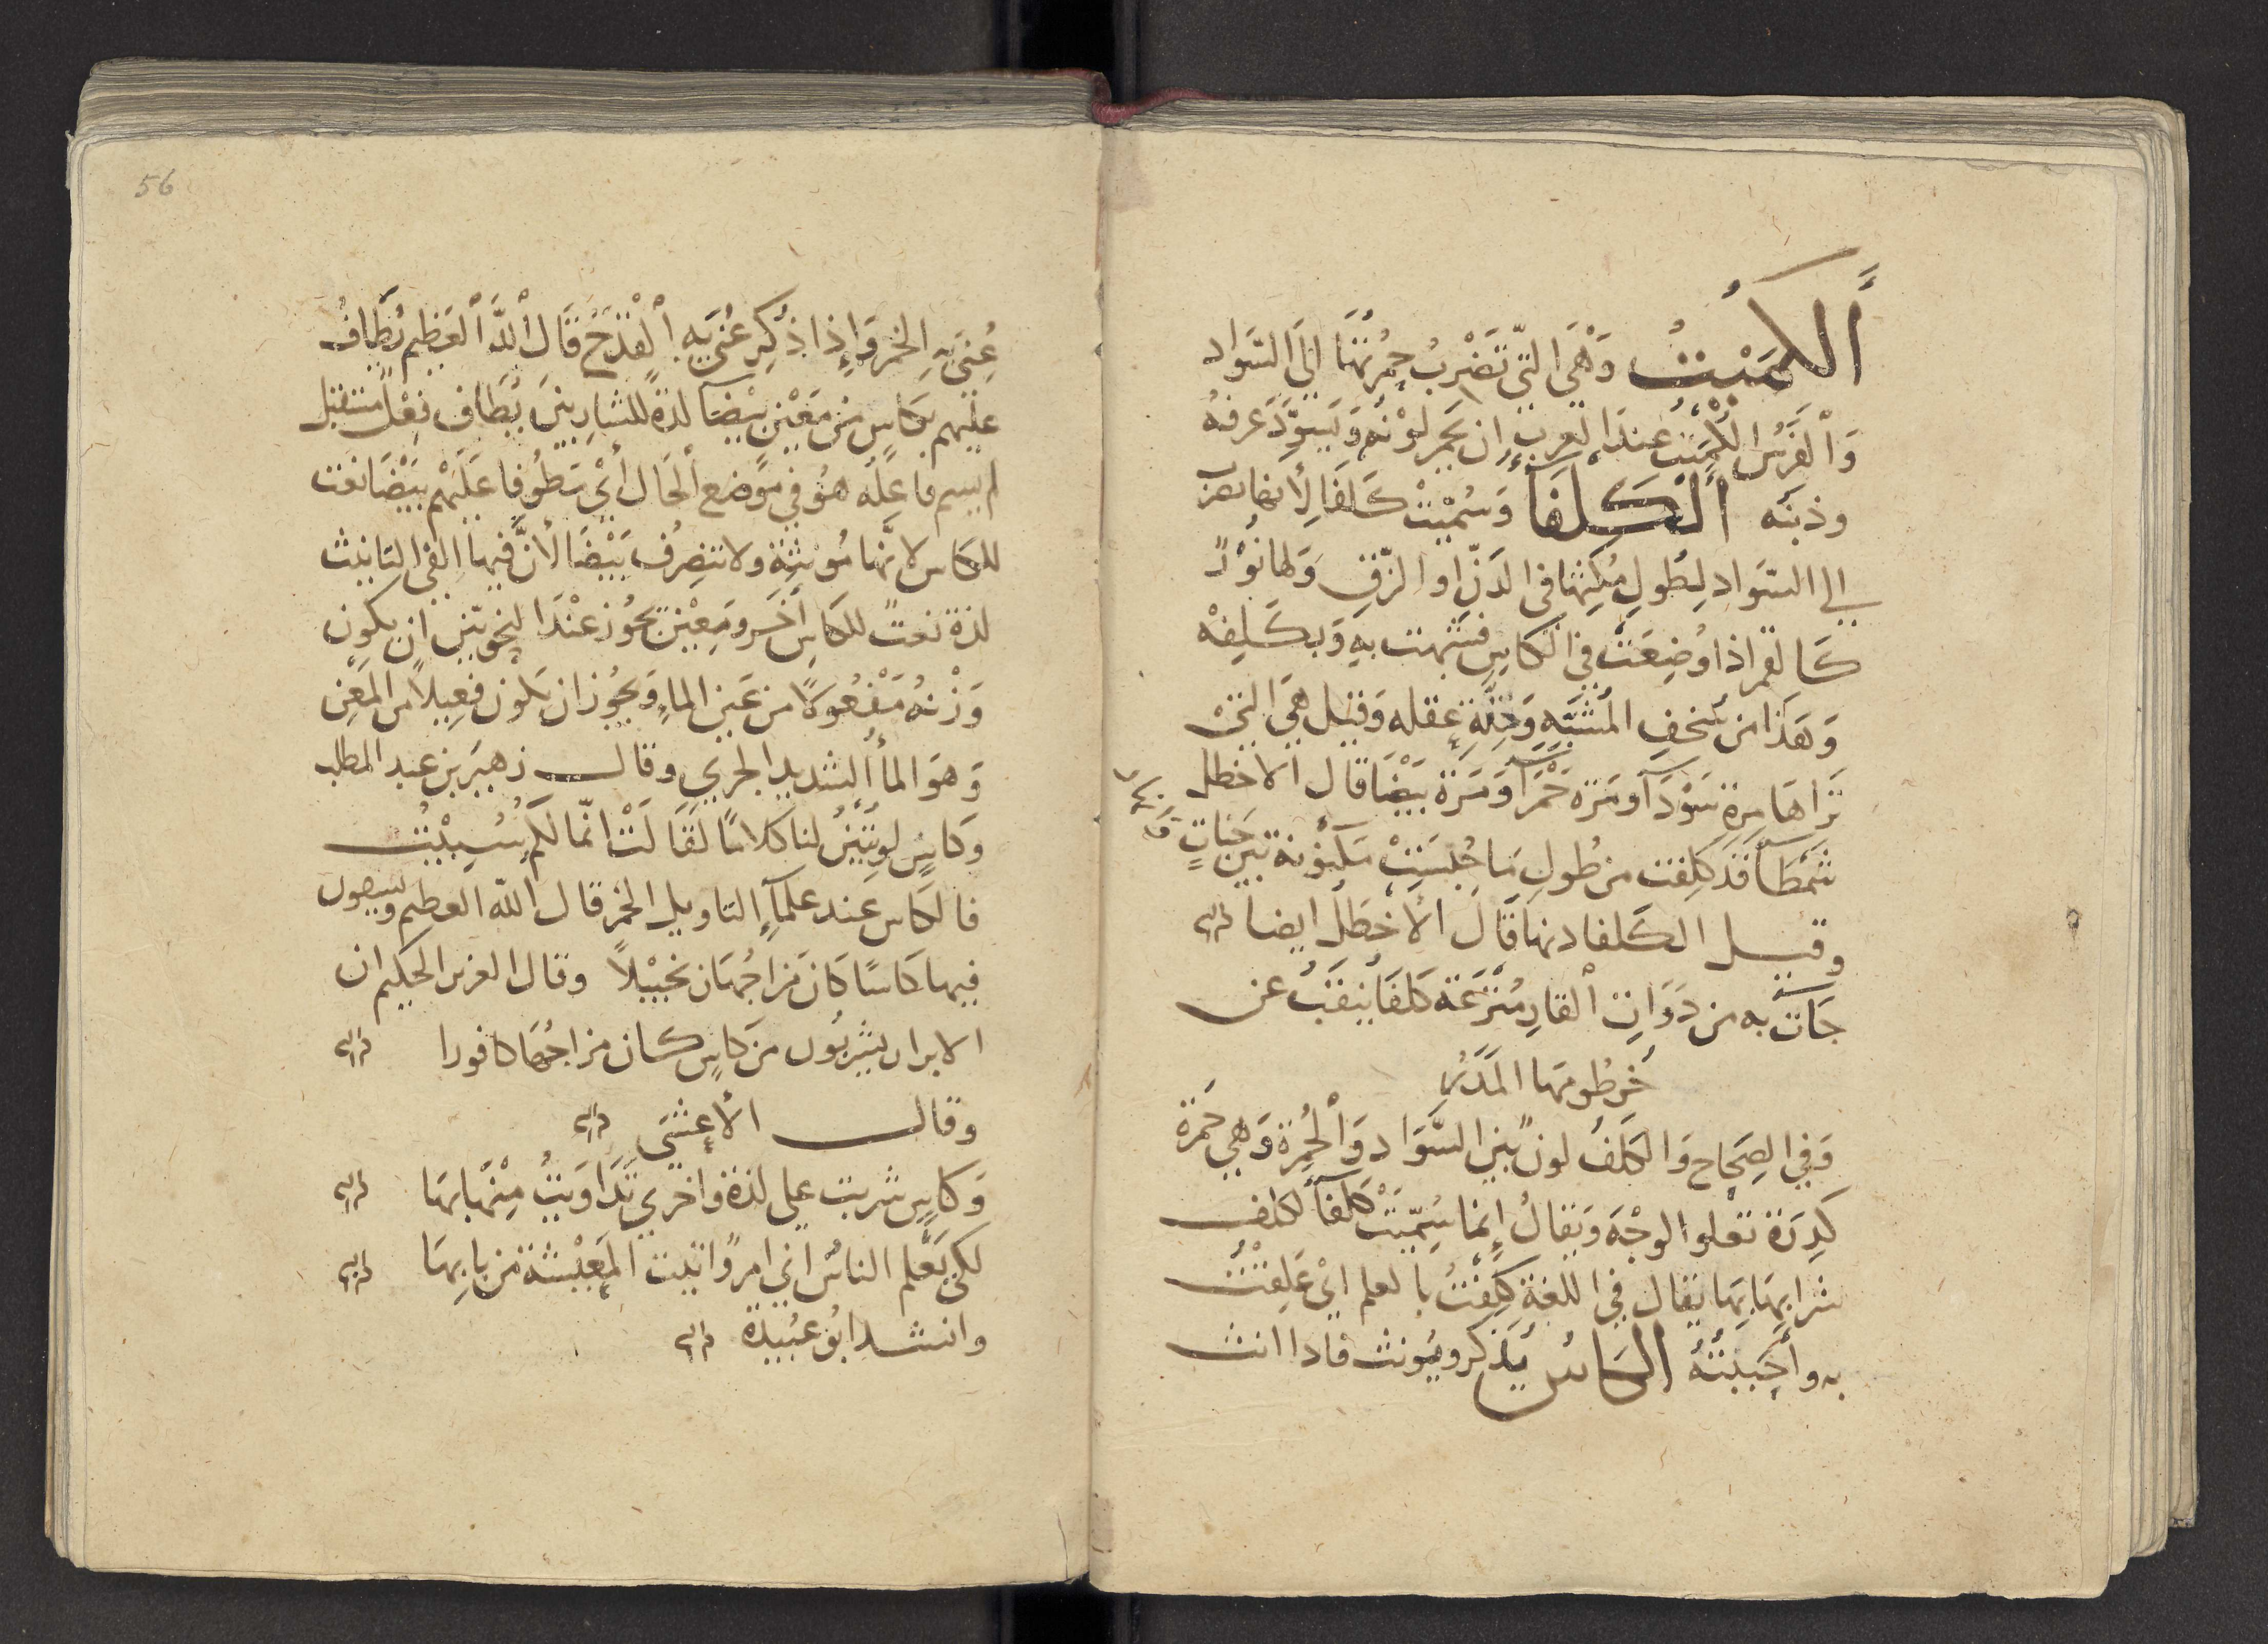 اَلكُمَيْتُ وَهْيَ التّي تَضْرِبُ حُمْرَتُهَا الَى السَّوَاد
وَاْلفَرَسُ الكُمَيْتُ عِندَ العَربِ اِن يَحمِر لَوْنُه وَيَسوَدَّ عرفهُ
وذنبُه اَلْكَلفَا وَسُمّيَتْ كَلفَا لِأنها تضرِبُ
الي السّوَادِ لِطُولِ مُكثِهَا في الدَنِّ او الزّقِ وَلها نُورٌ
كَالقمر اذا وُضِعَتْ في الكَاسِ فشبّهت بهِ وَبكَلفِهْ
وَهَذا من سُخفِ المُشَبّهِ وَقِلّةِ عقله وَقيل هيَ التيْ
تراهَا مرة سَوْدَآ وَمَرّة حَمْرَآ وَمَرّة بَيْضَا قال الاخطل
شَمْطآ قَد كلِفَت من طُولِ مَا حُبسَتْ مكنُونة بَين جَناتٍ وَ
وقيل الكَلفا دنهَا قَالَ الأخطَل ايضا
جَآت به من ذَوَاتِ اْلقارِ مُتْرَعَة كَلفَا يُنفَتُ عن
خُرطُومهَا المَدَرُ
وَفي الصِحَاح وَالكَلَفُ لونٌ بَينَ السَّوَاد وَاْلحُمرة وَهي حُمرَة
كَدِرَة تعلوا الوجْهَ وَيقالُ إنما سُمّيَتْ كَلفآ لكلف
شرابهَا بِهَا يقال في اللغة كَلِفْتُ بالعلم ايْ عَلِقْتُ
به وأحبَبتُهُ الكَاسُ يُذكر ويُونث فاذا انث
56
عُنيَ بهِ الخمر وَإذا ذُكِرَ عُني به اْلقدَحُ قَالَ اْللهُ اْلعَظِيم يُطَافُ
عليْهم بكَاسٍ من مَعِيْنٍ بيْضآ لذة للشارِبينَ يُطَاف فِعْل مستقبل
لم يسم فاعِلُه هوُ في موضع الحَال أيْ يَطُوفا عَلَيهْم بَيْضَا نعت
للكاس لانّها مُونثة ولا تنصرفُ بَيْضَا لأنَّ فيها الفي التانيث
لذة نعتٌ للكَاسِ آخر ومَعِيْن يجُوز عِنْدَ النحوّيينَ ان يكون
وَزْنهُ مَفْعُولاً من عَين الماءِ وَيجُوز ان يَكون فعِيلاً من المَعْنِ
وَهوَ المأ الشديد الجري وقال زهير بن عبد المطلب
وَكاسٍ لو تُبين لنا كلامًا لقَالَتْ انّما لكمُ سُبيْتُ
فالكاس عند علمآءِ التاويل الخمر قال الله العظيم ويسقون
فيها كَاسًا كَانَ مزاجُهَا زنجَبيْلاً وقال العزيز الحكيم ان
الابرار يشربُون من كاسٍ كان مزاجُها كافورا
وقال الأعشى
وَكاسٍ شربت على لذة وَاخري تَدَاوَيتُ مِنْهَا بهَا
لكي يَعْلم الناسُ اني امرؤ اتيت المَعِيْشة من بابهَا
وانشد ابُو عُبَيدة